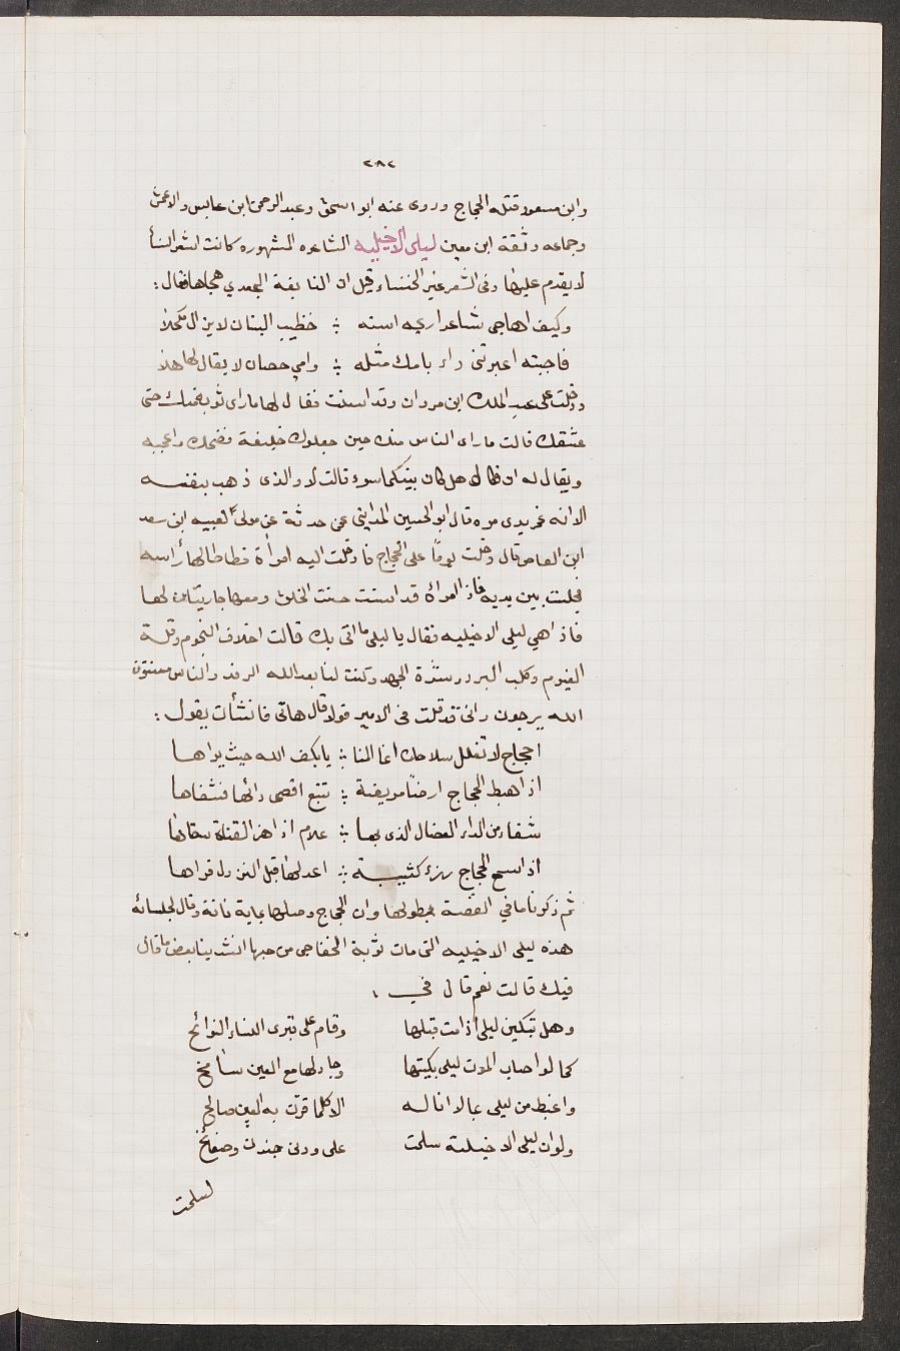 ٢٨٢
وابن مسعود قتله الحجاج وروى عنه ابو اسحق وعبد الرحمن ابن عابس والاعمش
وجماعه وثقة ابن معين ليلى الاخيليه الشاعره المشهوره كانت اشعر النسأ
لا يقدم عليها وفى الشعر غير الخنساء قيل ان النابغة الجعدي هجاها فقال :
وكيف اهاجى شاعرا استه ؛ خظيب البنان لا يزال مكحلا
فاجبته اعيرتنى داء بامك مثله ؛ واي حصان لا يقال لها هلا
ودخلت على عبد الملك ابن مروان وقد اسنت فقال لها ماراى ثوبة منك حتى
عشقك قالت ماراى الناس منك حين جعلوك خليفة فضحك واعجبه
ويقال له ان قال لها هل كان بينكما سوء قالت لا والذى ذهب بنفسه
الا انه غمز يدى مره قال ابو الحسين المدايني عمن حدثة عن مولى لعنبسه ابن سعد
ابن العاص قال دخلت يوما على الحجاج فادخلت اليه امرأة فطاطا لها راسه
فجلست بين يديه فاذ امراة قد اسنت حسنت الخلق ومعها جاريتاين لها
فاذا هي ليلى الاخيليه فقال يا ليلى ما اتى بك قالت اخلاف النجوم وقلة
الغيوم وكلب البرد وشدة الجهد وكنت لنا بعد الله الرفد والناس مسنتون
الله يرجون وانى قد قلت فى الامير قولا قال هاتى فانشأت يقول :
احجاج لا تفلل سلاحك انما المنا ؛ يا بكف الله حيث يراها
اذا هبط الحجاج ارضا مريضة ؛ تتبع اقصى دائها فشفاها
شفاء من الداء العضال الذى بها ؛ غلام اذا هز القناة سقاها
اذا سمع الحجاج رزء كتيبة ؛ اعد لها قبل النزول قراها
ثم ذكر تمامافي القصة بطولها وان الحجاج وصلها بماية ناقة وقال لجلسائه
هذه ليلى الاخيليه التى مات ثوبة الخفاجى من حبها انشدينا بعض ما قال
فيك قالت نعم قال في
وهل تبكين ليلى اذا مت قبلها وقام على قبرى النساء النوائح
كما لو اصاب الموت ليلى بكيتها وجاد لها مع العين سامخ
واغبط من ليلى بما لا اناله الا كلما قرت به العين صالح
ولو ان ليلى الاخيلية سلمت على ودنى جندل وصفائح
لسلمت